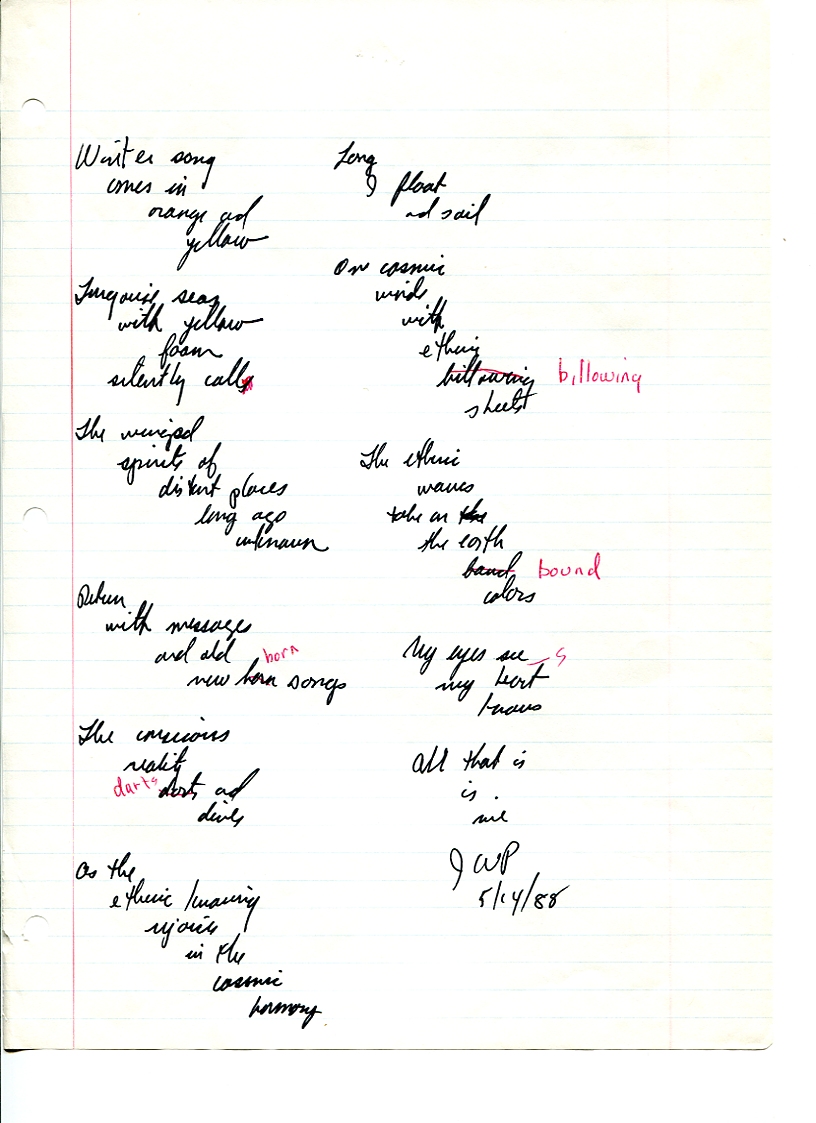 Winter song
comes in
orange ad
yellow
Turquoise seas
with yellow
foam
silently calls
The winged
spirits of
distant places
long ago
unknown
Return
with messages
and old born
new born songs
The conscious
reality
darts darts ad
dives
As the
etheric knowing
rejoices
in the
cosmic
harmony
Long
I float
ad sail
On cosmic
winds
with
etheric
billowing billowing
sheets
The etheric
waves
take on the
the earth
bound bound
colors
My eyes see s
my heart
knows
All that is
is.
me
J WP
5/14/88